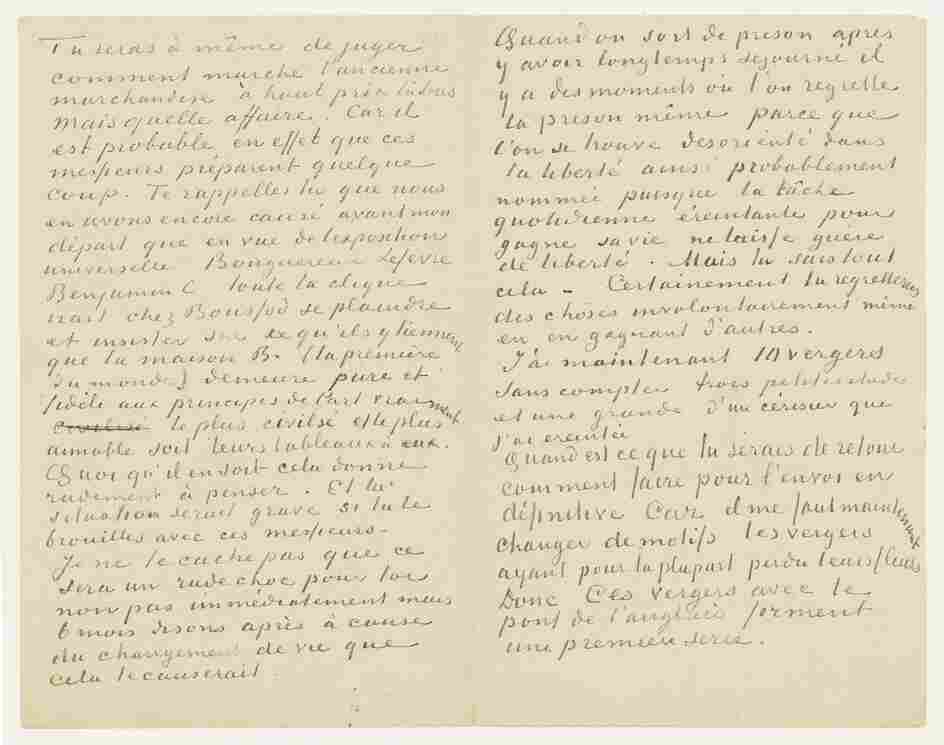 Tu seras à même de juger
comment marche l'ancienne
marchandise à haut prix là bas
Mais quelle affaire. Car il
est probable en effet que ces
messieurs préparent quelque
coup. Te rappelles tu que nous
en avons encore causé avant mon
départ que en vue de l'exposition
universelle Bouguereau Lefevre
Benjamin C toute la clique
irait chez Boussod se plaindre
et insister sur ce qu'ils y tiennent
que la maison B. (la première
du monde) demeure pure et
fidèle aux principes de l'art vraiment
civilisé le plus civilisé et le plus
aimable soit leurs tableaux à eux.
Quoi qu'il en soit cela donne
rudement à penser. Et la
situation serait grave si tu te
brouilles avec ces messieurs.
Je ne te cache pas que ce
sera un rude choc pour toi
non pas immédiatement mais
6 mois disons après à cause
du changement de vie que
cela te causerait
Quand on sort de prison après
y avoir longtemps séjourné il
y a des moments où l'on regrette
la prison même parce que
l'on se trouve désorienté dans
la liberté ainsi probablement
nommée puisque la tâche
quotidienne éreintante pour
gagne sa vie ne laisse guère
de liberté. Mais tu sais tout
cela – Certainement tu regretteras
des choses involontairement même
en en gagnant d'autres.
J'ai maintenant 10 vergers
sans compter trois petites etudes
et une grande d'un cérisier que
j'ai ereintée
Quand est ce que tu serais de retour
comment faire pour l'envoi en
définitive Car il me faut maintenant
changer de motifs les vergers
ayant pour la plupart perdu leurs fleurs
Donc Ces vergers avec le
pont de l'anglais forment
une première serie.